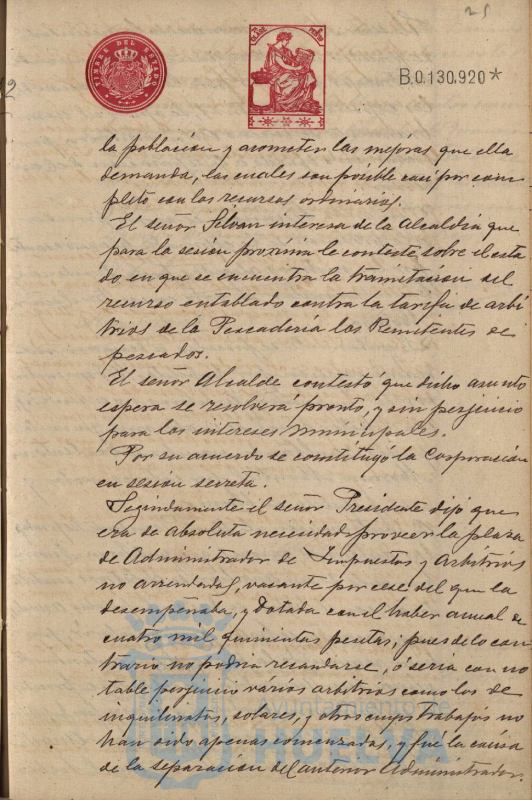 25
TIMBRE DEL ESTADO
B.0.130.920*
2
la población y acometer las mejoras que ella
demanda, las cuales son posible casi por com
pleto con los recursos ordinarios.
El señor Silvan interesa de la Alcaldía que
para la sesión proxima le conteste sobre el esta
do en que se encuentra la tramitacion del
recurso entablado contra la tarifa de arbi
trios de la Pescadería los Remitentes de
pescados.
El señor Alcalde contestó que dicho asunto
espera se resolverá pronto, y sin perjuicio
para los intereses municipales.
Por su acuerdo se constituyó la Corporación
en sesión secreta.
Segindamente el señor Presidente dijó que
era de absoluta necesidad proveer la plaza
de Administrador de Impuestos y Arbitrios
no arrendados, vacante por cese del que la
desempeñaba, y dotada con el haber anual de
cuatro mil quinientas pesetas; pues de lo con
trario no podria recaudarse, ó seria con no
table perjuicio vários arbitrios como los de
inquilinatos, solares, y otros cuyos trabajos no
han sido apenas comenzados, y fué la causa
de la separacion del anterior Administrador.
Ayuntamiento de
HUELVA